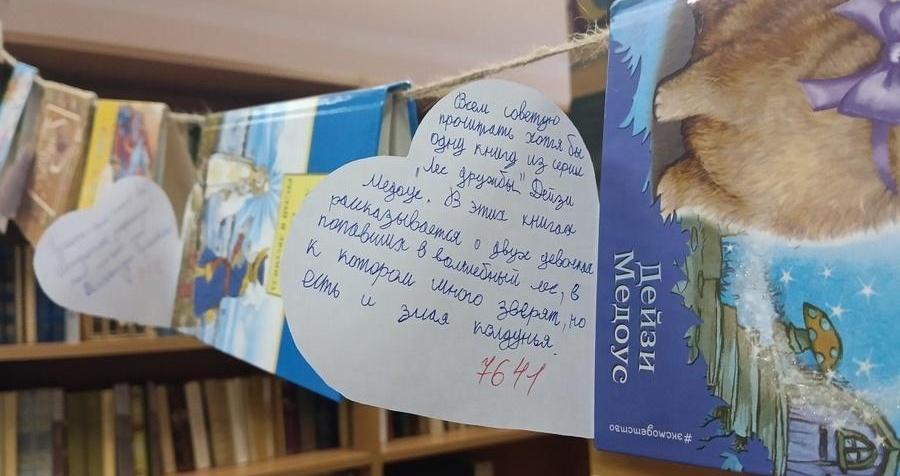 Всем советую
прочитать хотя бы
одну книгу из серии
"Лес дружбы" Дейзи
Медоус. В этих книгах
рассказывается о двух девочках
попавших в волшебный лес, в
к котором много зверят, но
есть и злая колдунья.
7641
Дейзи
Медоус
#эксмодетство